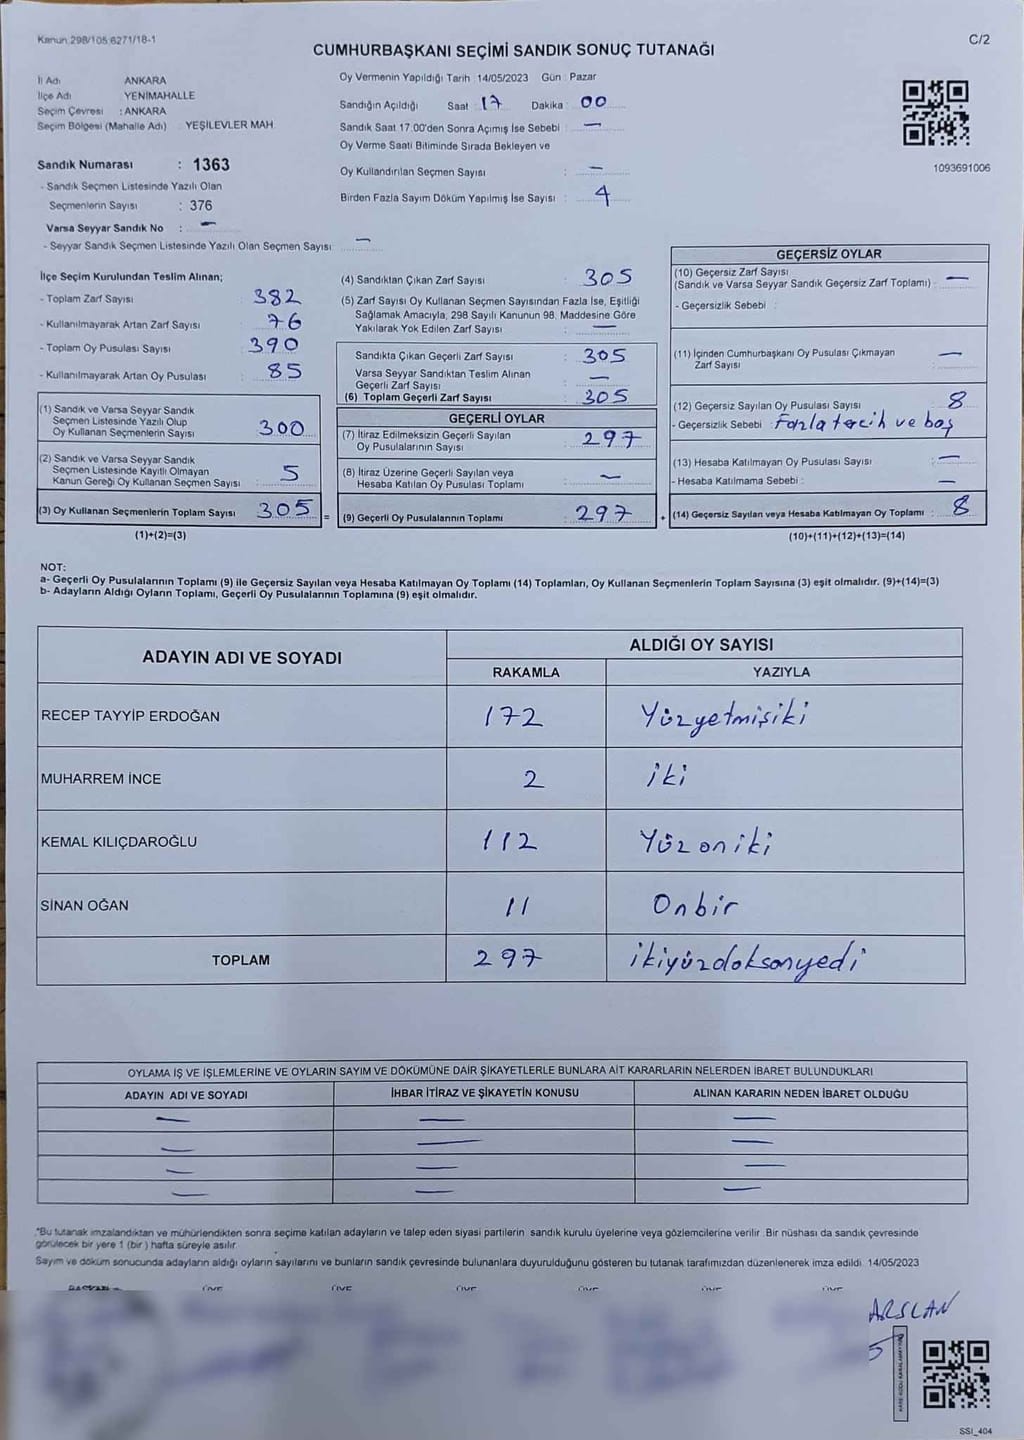 Kanun 298/105 6271/18-1
C/2
CUMHURBAŞKANI SEÇİMİ SANDIK SONUÇ TUTANAĞI
İl Adı ANKARA
İlçe Adı YENİMAHALLE
Seçim Çevresi : ANKARA
Seçim Bölgesi (Mahalle Adı) YEŞİLEVLER MAH
Sandık Numarası : 1363
- Sandık Seçmen Listesinde Yazılı Olan
Seçmenlerin Sayısı : 376
Varsa Seyyar Sandık No : —
- Seyyar Sandık Seçmen Listesinde Yazılı Olan Seçmen Sayısı: —
Oy Vermenin Yapıldığı Tarih 14/05/2023 Gün : Pazar
Sandığın Açıldığı Saat 17 Dakika 00
Sandık Saat 17.00'den Sonra Açımış İse Sebebi : —
Oy Verme Saati Bitiminde Sırada Bekleyen ve
Oy Kullandırılan Seçmen Sayısı : —
Birden Fazla Sayım Döküm Yapılmış İse Sayısı : 4
1093691006
İlçe Seçim Kurulundan Teslim Alınan;
- Toplam Zarf Sayısı 382
- Kullanılmayarak Artan Zarf Sayısı 76
- Toplam Oy Pusulası Sayısı 390
- Kullanılmayarak Artan Oy Pusulası 85
(1) Sandık ve Varsa Seyyar Sandık
Seçmen Listesinde Yazılı Olup
Oy Kullanan Seçmenlerin Sayısı 300
(2) Sandık ve Varsa Seyyar Sandık
Seçmen Listesinde Kayıtlı Olmayan
Kanun Gereği Oy Kullanan Seçmen Sayısı : 5
(3) Oy Kullanan Seçmenlerin Toplam Sayısı 305 =
(1)+(2)=(3)
(4) Sandıktan Çıkan Zarf Sayısı : 305
(5) Zarf Sayısı Oy Kullanan Seçmen Sayısından Fazla İse, Eşitliği
Sağlamak Amacıyla, 298 Sayılı Kanunun 98. Maddesine Göre
Yakılarak Yok Edilen Zarf Sayısı : —
Sandıkta Çıkan Geçerli Zarf Sayısı : 305
Varsa Seyyar Sandıktan Teslim Alınan
Geçerli Zarf Sayısı : —
(6) Toplam Geçerli Zarf Sayısı : 305
GEÇERLİ OYLAR
(7) İtiraz Edilmeksizin Geçerli Sayılan
Oy Pusulalarının Sayısı : 297
(8) İtiraz Üzerine Geçerli Sayılan veya
Hesaba Katılan Oy Pusulası Toplamı : —
(9) Geçerli Oy Pusulalarının Toplamı : 297 +
GEÇERSİZ OYLAR
(10) Geçersiz Zarf Sayısı
(Sandık ve Varsa Seyyar Sandık Geçersiz Zarf Toplamı) : —
- Geçersizlik Sebebi :
(11) İçinden Cumhurbaşkanı Oy Pusulası Çıkmayan
Zarf Sayısı : —
(12) Geçersiz Sayılan Oy Pusulası Sayısı : 8
- Geçersizlik Sebebi : Fazla tercih ve boş
(13) Hesaba Katılmayan Oy Pusulası Sayısı : —
- Hesaba Katılmama Sebebi : —
(14) Geçersiz Sayılan veya Hesaba Katılmayan Oy Toplamı : 8
(10)+(11)+(12)+(13)=(14)
NOT:
a- Geçerli Oy Pusulalarının Toplamı (9) ile Geçersiz Sayılan veya Hesaba Katılmayan Oy Toplamı (14) Toplamları, Oy Kullanan Seçmenlerin Toplam Sayısına (3) eşit olmalıdır. (9)+(14)=(3)
b- Adayların Aldığı Oyların Toplamı, Geçerli Oy Pusulalarının Toplamına (9) eşit olmalıdır.
ADAYIN ADI VE SOYADI
ALDIĞI OY SAYISI
RAKAMLA YAZIYLA
RECEP TAYYİP ERDOĞAN 172 Yüzyetmişiki
MUHARREM İNCE 2 iki
KEMAL KILIÇDAROĞLU 112 Yüz on iki
SİNAN OĞAN 11 Onbir
TOPLAM 297 ikiyüzdoksanyedi
OYLAMA İŞ VE İŞLEMLERİNE VE OYLARIN SAYIM VE DÖKÜMÜNE DAİR ŞİKAYETLERLE BUNLARA AİT KARARLARIN NELERDEN İBARET BULUNDUKLARI
ADAYIN ADI VE SOYADI İHBAR İTİRAZ VE ŞİKAYETİN KONUSU ALINAN KARARIN NEDEN İBARET OLDUĞU
— — —
— — —
— — —
— — —
*Bu tutanak imzalandıktan ve mühürlendikten sonra seçime katılan adayların ve talep eden siyasi partilerin sandık kurulu üyelerine veya gözlemcilerine verilir. Bir nüshası da sandık çevresinde
görülecek bir yere 1 (bir) hafta süreyle asılır.
Sayım ve döküm sonucunda adayların aldığı oyların sayılarını ve bunların sandık çevresinde bulunanlara duyurulduğunu gösteren bu tutanak tarafımızdan düzenlenerek imza edildi. 14/05/2023
BAŞKAN ÜYE ÜYE ÜYE ÜYE ÜYE ÜYE
ARSLAN
SSI_404